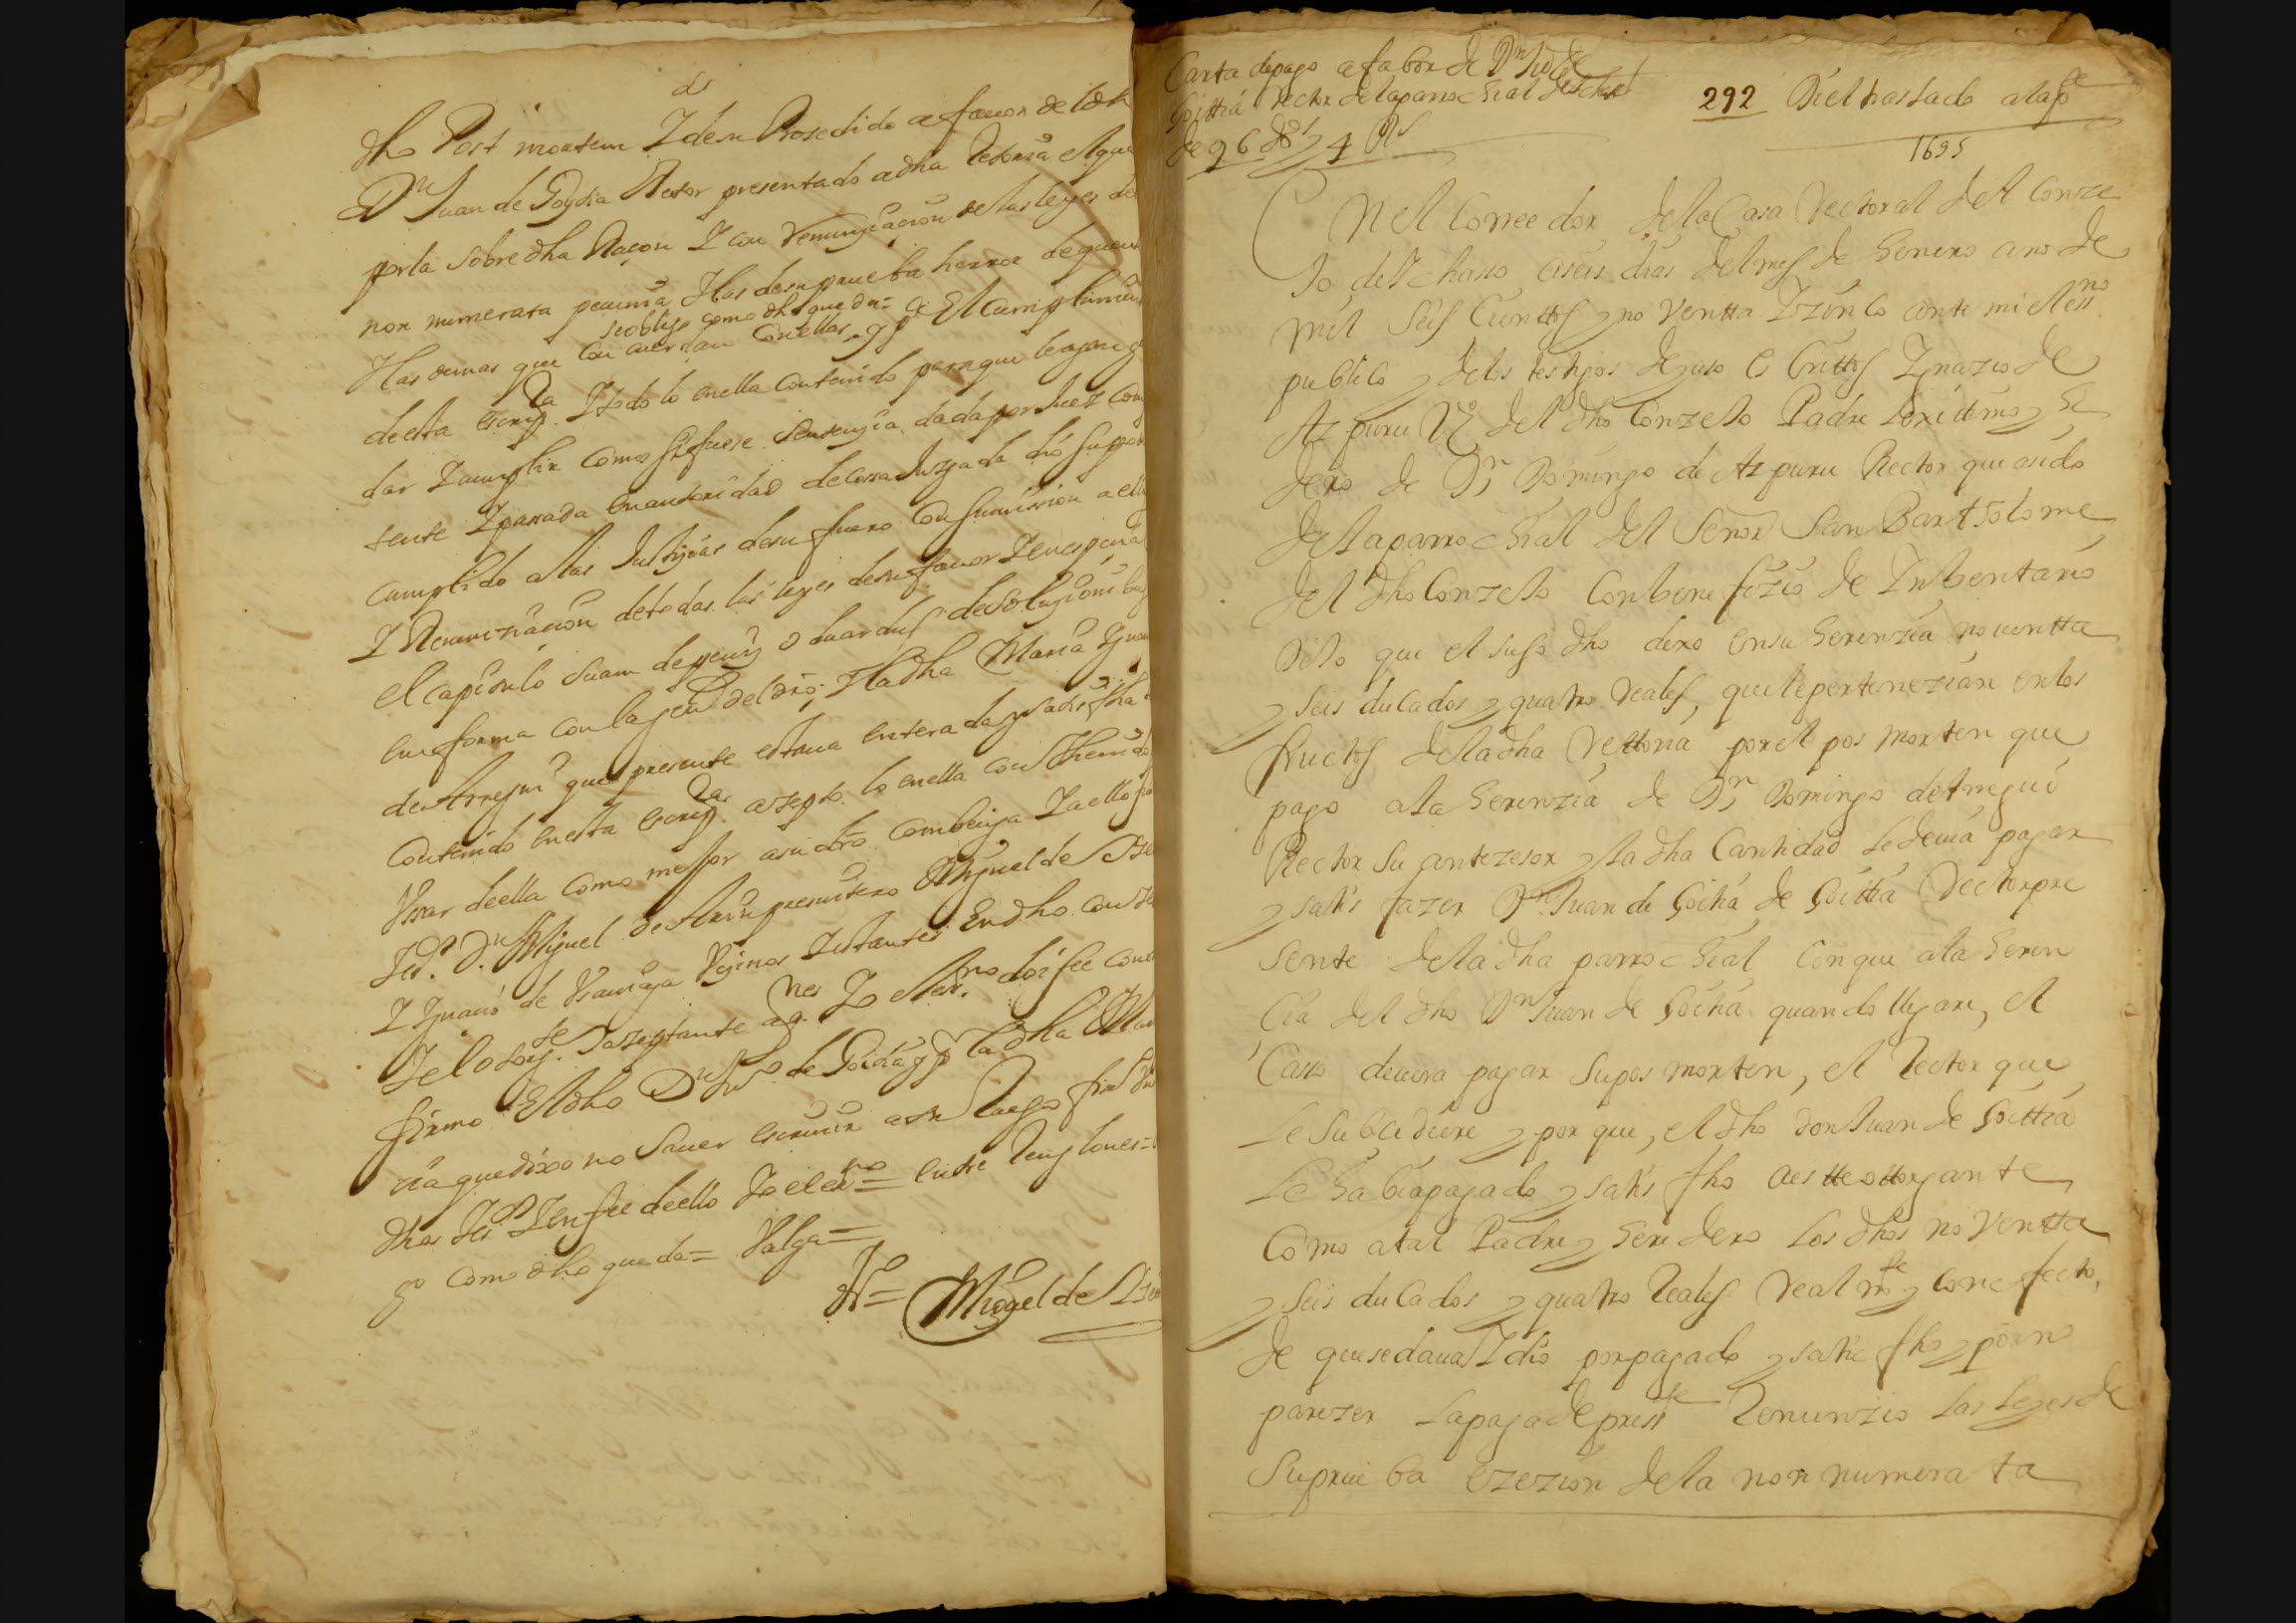 ds
dho Post mortem I desu Prosedido a fauor de
Dn Juan de Goytia Retor presentado a dha Retoria el que
por la sobre dha Raçon I con renunçiaçion de las leyes de
non numerata pecunia I las de su prueba herror de quenta
se obligo como dho queda =
I las demas que con cuerdan con ellas, y p a El cumplimien
de esta escrip.ra I todo lo en ella contenido para que le agan g
dar I cumplir como si fuese sentençia dada por Juez com
tente I passada en autoridad de cossa Juzgada dio su poder
cumplido a las Justiçias de su fuero con sumision a ellas
I Renunziaçion de todas las leyes de su fauor I en espeçial
el capitulo suam de penis o duardus de solugionibus
en forma con la gen.l del dro; I la dha Maria
de Arregui que presente estaua enterada y satisfha
contenido en esta escrip.ra azepto lo en ella conthenido
Vsar de ella como mejor a su dro combenga I a ello
tes.o Dn Miguel de presuitero Miguel de
I Ignaçio de Vsaunaga Veçinos Iestantes En dho conze
I el otorg.te I azeptante a q.nes Io el es.no doi fee cono
firmo El dho Dn Ju.o de Goitia y p la dha Mar
ria que dixo no sauer escriuir a su Ruego firmo
dhos tes.os I en fee de ello Io el es.no = entre Renglones =
go como dho queda = Valga =
Po = Miguel de
Carta de pago a fabor de Dn Ju.o de
Goittia Rector de la parrochial de
de 96 dos y 4 Rs
292 Di el traslado a la p.te
1695
En el Corredor de la Casa Rectoral del Conze
Jo de chasso a seis dias del mes de henero ano de
mil seis Cientos y no Ventta I zinco ante mi el ess.no
publico y de los testigos de yuso escrittos Ignazio de
Azpuru Vz.o del dho Conzejo Padre lexittimo y he
dero de Dn Domingo de Azpuru Rector que a sido
de la parrochial del Señor San Barttolome
del dho Conzejo Con bene fizio de Inbentario
Dixo que el suso dho dexo en su herenzia no uentta
y seis ducados y quatro Reales, que le pertenezian en los
fructos de la dha Rettoria por el pos morten que
pago a la herenzia de Dn Domingo de Arregui
Rector su antezesor y la dha Cantidad le deuia pagar
y satis fazer Dn Juan de Goitia de Goittia Rector pre
sente de la dha parrochial con que a la heren
Cia del dho Dn Juan de Goitia quando llegare, el
Casso deuera pagar su pos morten, el Rector que
le Subcediere y por que, el dho don Juan de Goittia
le habia pagado y satis fho a estte ottorgante
Como a tal Padre y heredero los dhos no Ventta
y seis ducados y quatro Reales Real m.te y con efecto,
de que se daua I dio por pagado y satis fho y por no
parezer la paga de press.te Renunzio las leyes de
su prueba ezezion de la non numerata